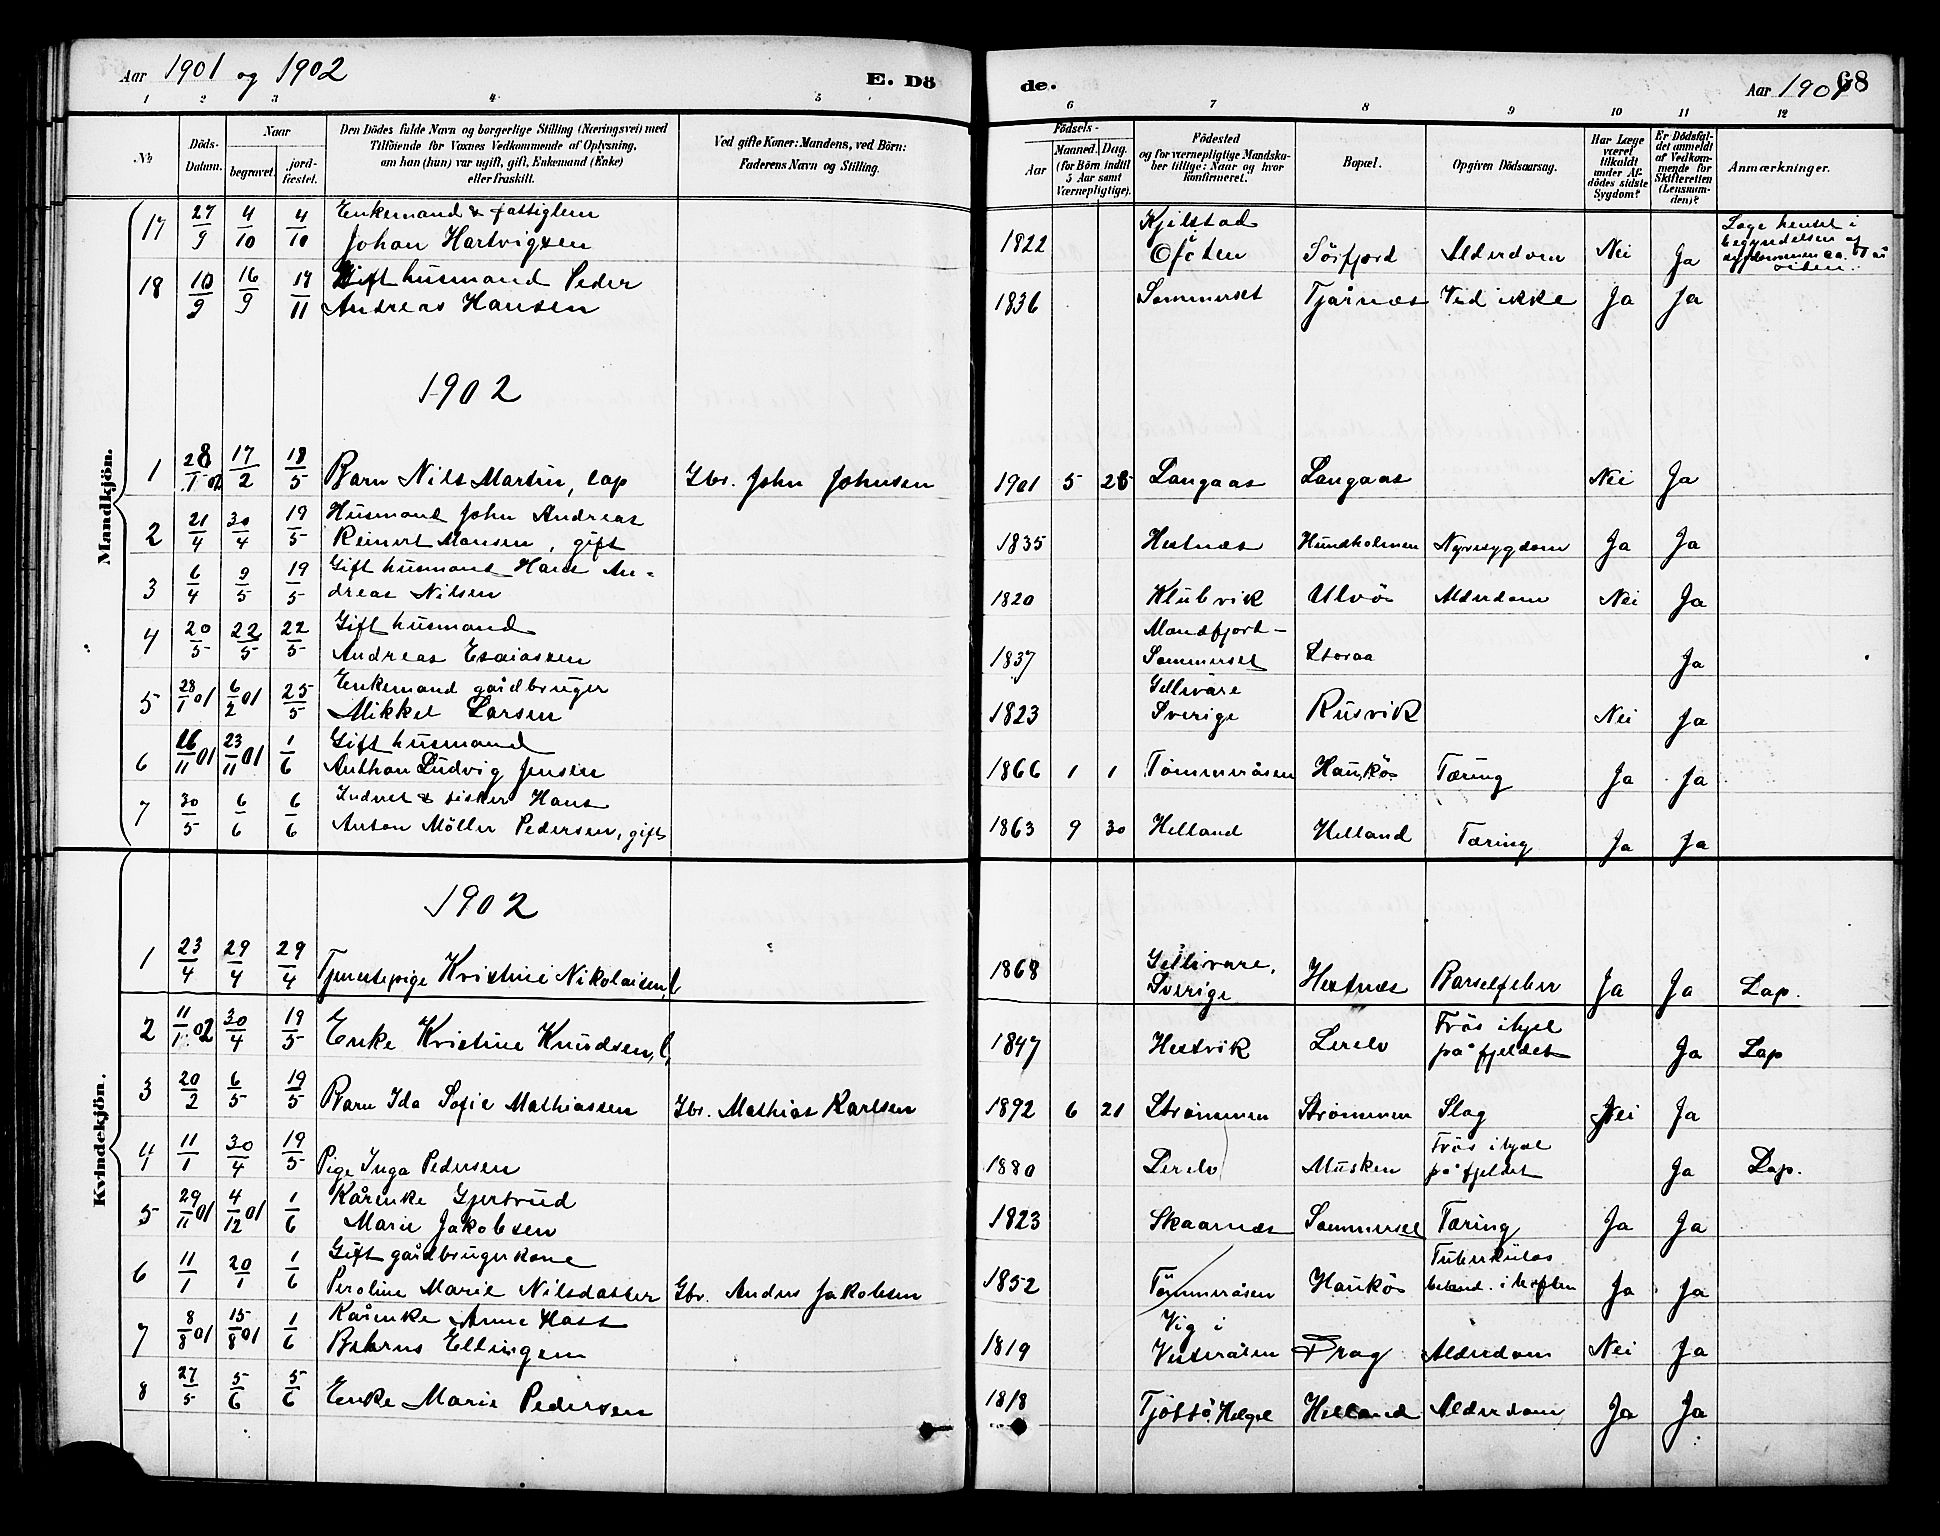 Aar 1901 og 1902 E. Dö de. Aar 1901 68
1 2 3 4 5 6 7 8 9 10 11 12
№
Döds-Datum.
Naar
begravet. jord-fæstet.
Den Dödes fulde Navn og borgerlige Stilling (Næringsvei) med
Tilföiende for Voxnes Vedkommende af Oplysning,
om han (hun) var ugift, gift, Enkemand (Enke)
eller fraskilt.
Ved gifte Koner: Mandens, ved Börn:
Faderens Navn og Stilling.
Födsels-
Aar Maaned. Dag.
(for Börn indtil
5 Aar samt
Værnepligtige).
Födested
og for værnepligtige Mandska-
ber tillige: Naar og hvor
konfirmeret.
Bopæl.
Opgiven Dödsaarsag.
Har Læge
været
tilkaldt
under Af-
dödes sidste
Sygdom?
Er Dödsfal-
det anmeldt
af Vedkom-
mende for
Skifteretten
(Lensman-
den)?
Anmærkninger.
Mandkjön.
17 27/9 4/10 4/10 Enkemand & fattiglem
Johan Hartvigsen 1822 Kjelstad
Ofoten Sörfjord Alderdom Nei Ja Læge hentet i
begyndelsen af
18 10/9 16/9 17/11 Gift husmand Peder
Andreas Hansen 1836 Sommerset Tjårnæs Ved ikke Ja Ja
1902
1 28/1 02 17/2 18/5 Barn Nils Martin, lap Gbr. John Johnsen 1901 5 25 Langaas Langaas Nei Ja
2 21/4 30/4 19/5 Husmand John Andreas
Reinert Monsen, gift 1835 Hestnæs Hundholmen Nyresygdom Ja Ja
3 6/4 9/5 19/5 Gift husmand Hans An-
dreas Nilsen 1820 Klubvik Ulvö Alderdom Nei Ja
4 20/5 22/5 22/5 Gift husmand
Andreas Esaiassen 1837 Mandfjord-
Sommerset Storaa Ja
5 28/1 01 6/2 01 25/5 Enkemand gaårdbruger
Mikkel Larsen 1823 Gellivåre
Sverige Rusvik Nei Ja
6 16/11 01 23/11 01 1/6 Gift husmand
Anthon Ludvig Jensen 1866 1 1 Tømmeråsen Haukö Tæring Ja Ja
7 30/5 6/6 6/6 Indret & fisker Hans
Anton Möller Pedersen, gift 1863 9 30 Helland Helland Tæring Ja Ja
Kvindekjön.
1902
1 23/4 29/4 29/4 Tjenestepige Kristine Nikolaisen, l 1868 Gellivare,
Sverige Hestnæs Barselfeber Ja Ja Lap.
2 11/1 02 30/4 19/5 Enke Kristine Knudsen, l, 1847 Hestvik Lerelv Frös ihjel
på fjeldet Ja Lap
3 20/2 6/5 19/5 Barn Ida Sofie Mathiassen Gbr. Mathias Karlsen 1892 6 21 Strømmen Strømmen Slag Nei Ja
4 11/1 30/4 19/5 Pige Inga Pedersen 1880 Lerelv Musken Frös ihjel
på fjeldet Ja Lap.
5 29/11 01 4/12 01 1/6 Kårenke Gjertrud
Marie Jakobsen 1823 Skaarnæs Sommerset Tæring Ja Ja
6 11/1 20/1 1/6 Gift gaårdbrugerkone
Peroline Marie Nilsdatter Gbr. Anders Jakobsen 1852 Tömmeråsen Haukö Tuberkulos
betænd. i hoften Ja Ja
7 8/8 01 15/8 01 1/6 Kårenke Anne Hast
Behrns Ellingsen 1819 Vig i
Vesterålen Drag Alderdom Nei Ja
8 27/5 5/6 5/6 Enke Marie Pedersen 1818 Tjöttö, Helgel Helland Alderdom Ja Ja